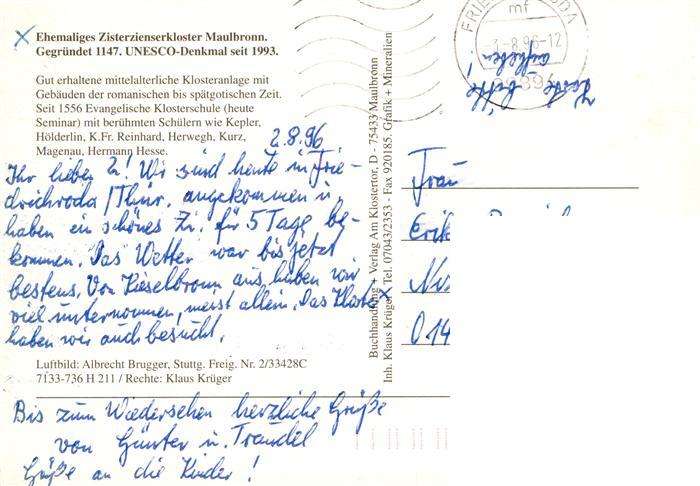 Ehemaliges Zisterzienserkloster Maulbronn.
Gegründet 1147. UNESCO-Denkmal seit 1993.
Gut erhaltene mittelalterliche Klosteranlage mit
Gebäuden der romanischen bis spätgotischen Zeit.
Seit 1556 Evangelische Klosterschule (heute
Seminar) mit berühmten Schülern wie Kepler,
Hölderlin, K.Fr. Reinhard, Herwegh, Kurz,
Magenau, Hermann Hesse.
2.8.96.
Ihr lieben 2! Wir sind heute in Frie-
drichroda/Thür. angekommen u.
haben ein schönes Zi. für 5 Tage be-
kommen. Das Wetter war bis jetzt
bestens. Von Kieselbronn aus haben wir
viel unternommen, meist allein. Das Kloster x
haben wir auch besucht.
Luftbild: Albrecht Brugger, Stuttg. Freig. Nr. 2/33428C
7133-736 H 211 / Rechte: Klaus Krüger
Bis zum Wiedersehen herzliche Grüße
von Günter u. Traudel
Grüße an die Kinder!
Buchhandlung + Verlag Am Klostertor, D - 75433 Maulbronn
Inh. Klaus Krüger, Tel. 07043/2353 - Fax 920185. Grafik + Mineralien
mf
-3.-8.96-12
Karte bitte
aufheben!
Frau
Erik
014